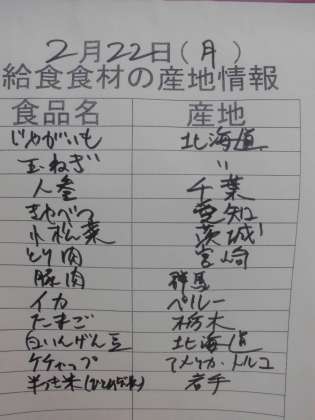 2月22日(月)
給食食材の産地情報
食品名 産地
じゃがいも 北海道
玉ねぎ 〃
人参 千葉
きゃべつ 愛知
小松菜 茨城
とり肉 宮崎
豚肉 群馬
イカ ペルー
たまご 栃木
白いんげん豆 北海道
ケチャップ アメリカ・トルコ
半つき米(ひとめぼれ) 岩手